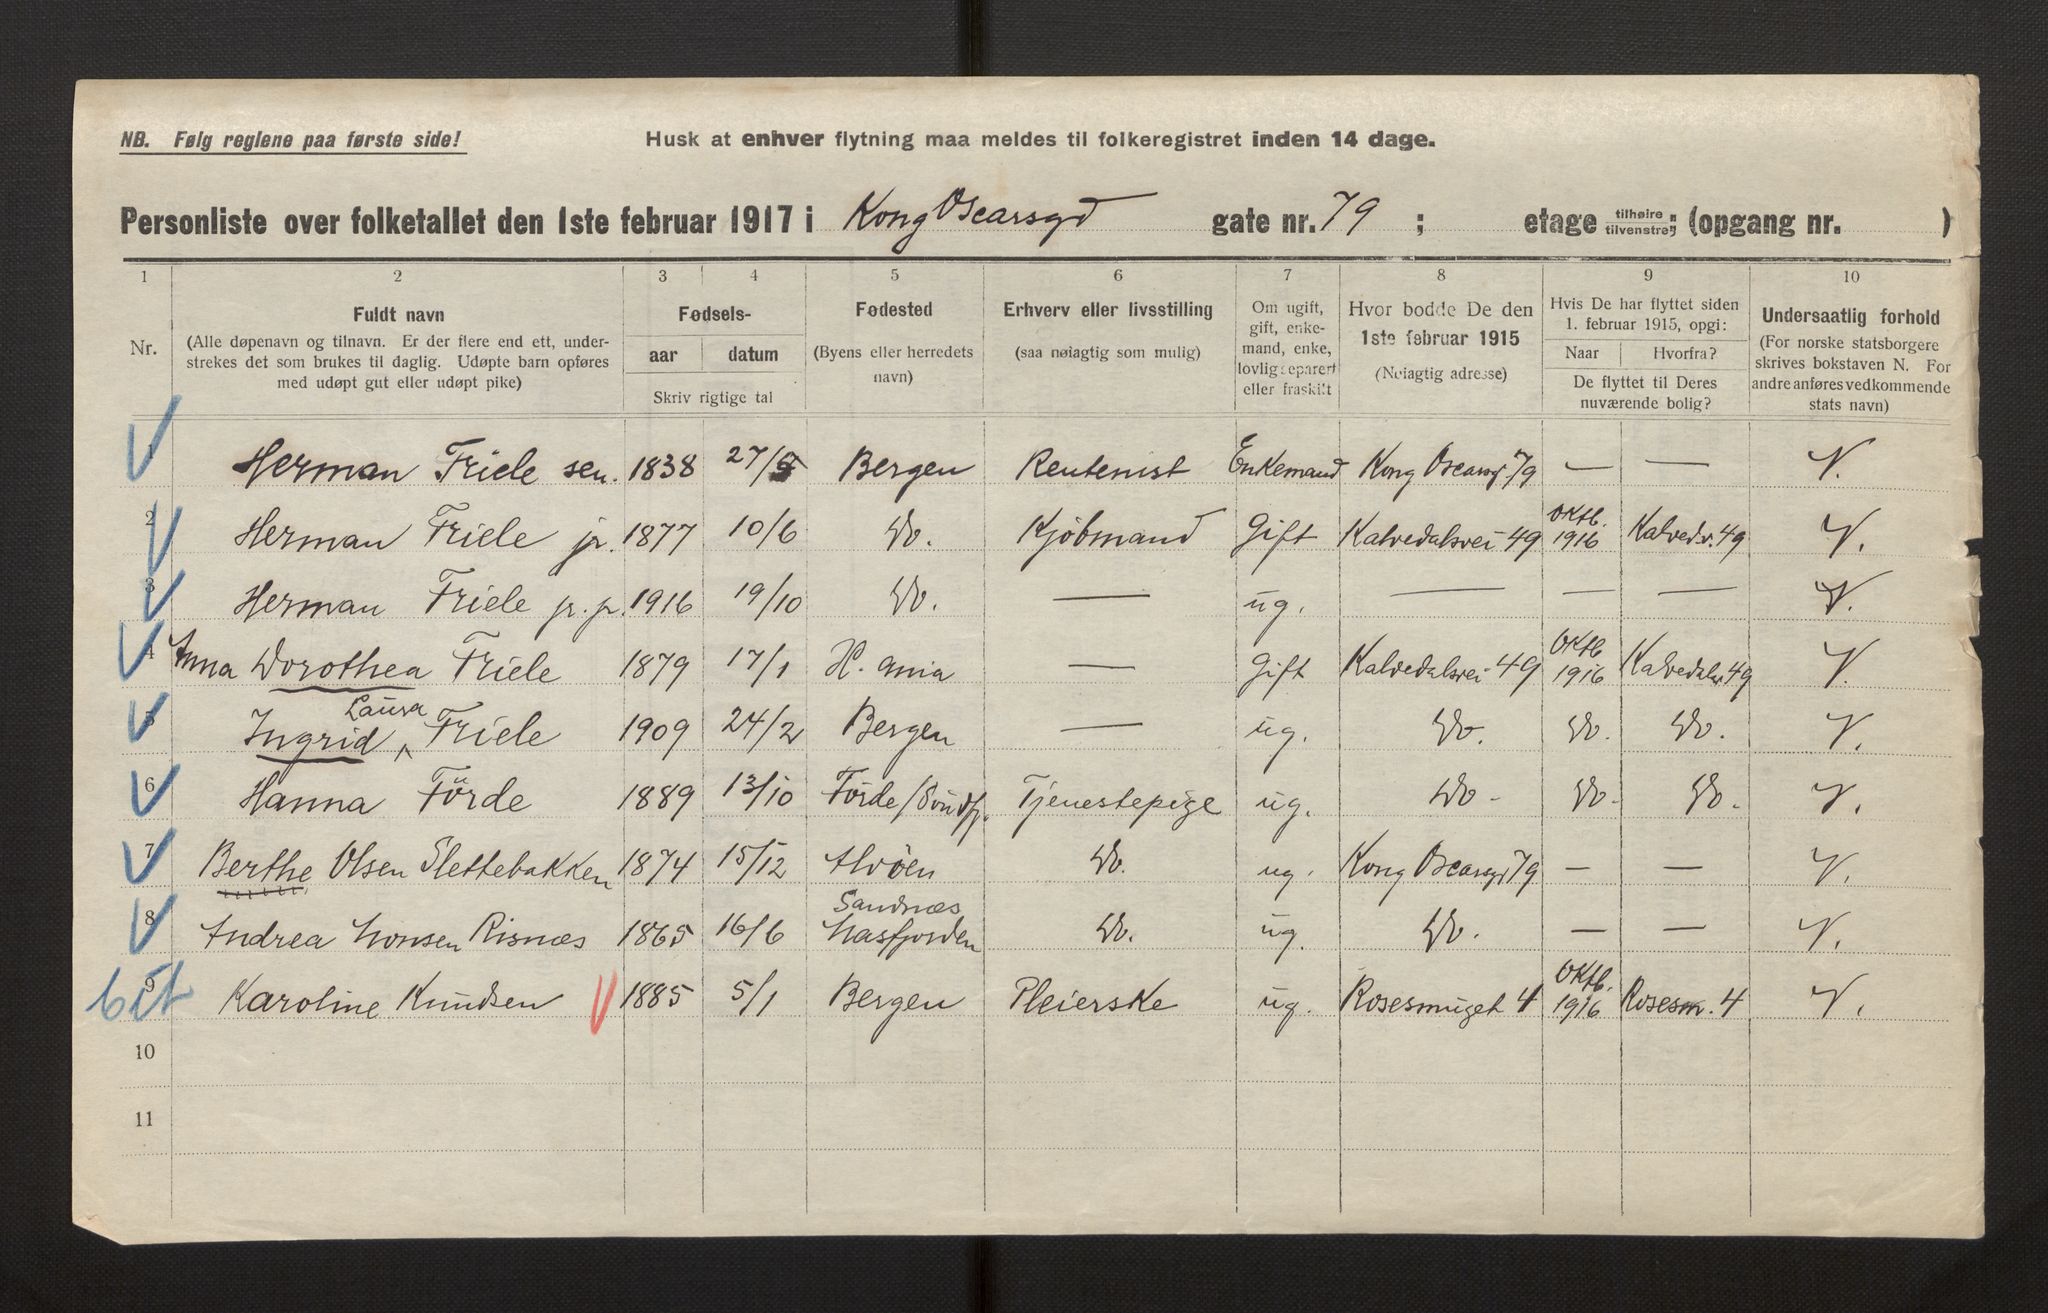 NB. Følg reglene paa første side!
Husk at enhver flytning maa meldes til folkeregistret inden 14 dage.
Personliste over folketallet den 1ste februar 1917 i Kong Oscarsgd gate nr. 79 ; etage tilhøire tilvenstre; (opgang nr. )
1 2 3 4 5 6 7 8 9 10
Nr.
Fuldt navn
(Alle døpenavn og tilnavn. Er der flere end ett, under-
strekes det som brukes til daglig. Udøpte barn opføres
med udøpt gut eller udøpt pike)
Fødsels-
aar datum
Skriv rigtige tal
Fødested
(Byens eller herredets
navn)
Erhverv eller livsstilling
(saa nøiagtig som mulig)
Om ugift,
gift, enke-
mand, enke,
lovlig separert
eller fraskilt
Hvor bodde De den
1ste februar 1915
(Nøiagtig adresse)
Hvis De har flyttet siden
1. februar 1915, opgi:
Naar Hvorfra?
De flyttet til Deres
nuværende bolig?
Undersaatlig forhold
(For norske statsborgere
skrives bokstaven N. For
andre anføres vedkommende
stats navn)
1 Herman Friele sen. 1838 27/ Bergen Rentenist Enkemand Kong Oscarsgd 79 — — N.
2 Herman Friele jr. 1877 10/6 Do. Kjøbmand Gift Kalvedalsvei 49 Oktb. 1916 Kalvedv. 49 N.
3 Herman Friele jr. jr. 1916 19/10 Do. — ug. — — — N.
4 Anna Dorothea Friele 1879 17/1 — Gift Kalvedalsvei 49 Oktb 1916 Kalvedalsv 49 N.
5 Ingrid Laura Friele 1909 24/2 Bergen — ug. Do. Do. Do. N.
6 Hanna Förde 1889 13/10 Förde/Söndfj. Tjenestepige ug. Do - Do - Do - N.
7 Berthe Olsen Slettebakken 1874 15/12 Alvöen Do. ug. Kong Oscarsgd 79 — — N.
8 Andrea Monsen Risnæs 1865 16/6 Sandnæs Masfjorden Do. ug. Do. — — N.
9 Karoline Knudsen 1885 5/1 Bergen Pleierske ug. Rosesmuget 4 Oktb. 1916 Rosesm. 4 N.
10
11